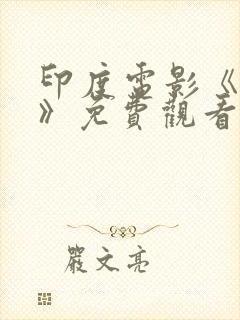 印度電影《
》免費觀看
嚴文亮